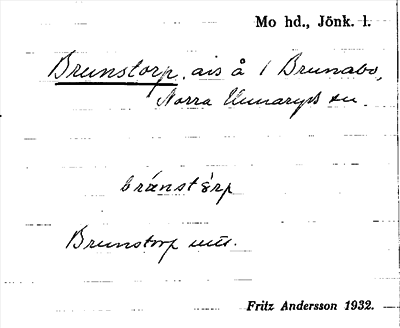 Mo hd., Jönk. l.
Brunstorp, ais å 1 Brunabo,
Norra Unnaryds sn.
brúnstȯ́rp
Brunstorp utt.
Fritz Andersson 1932.